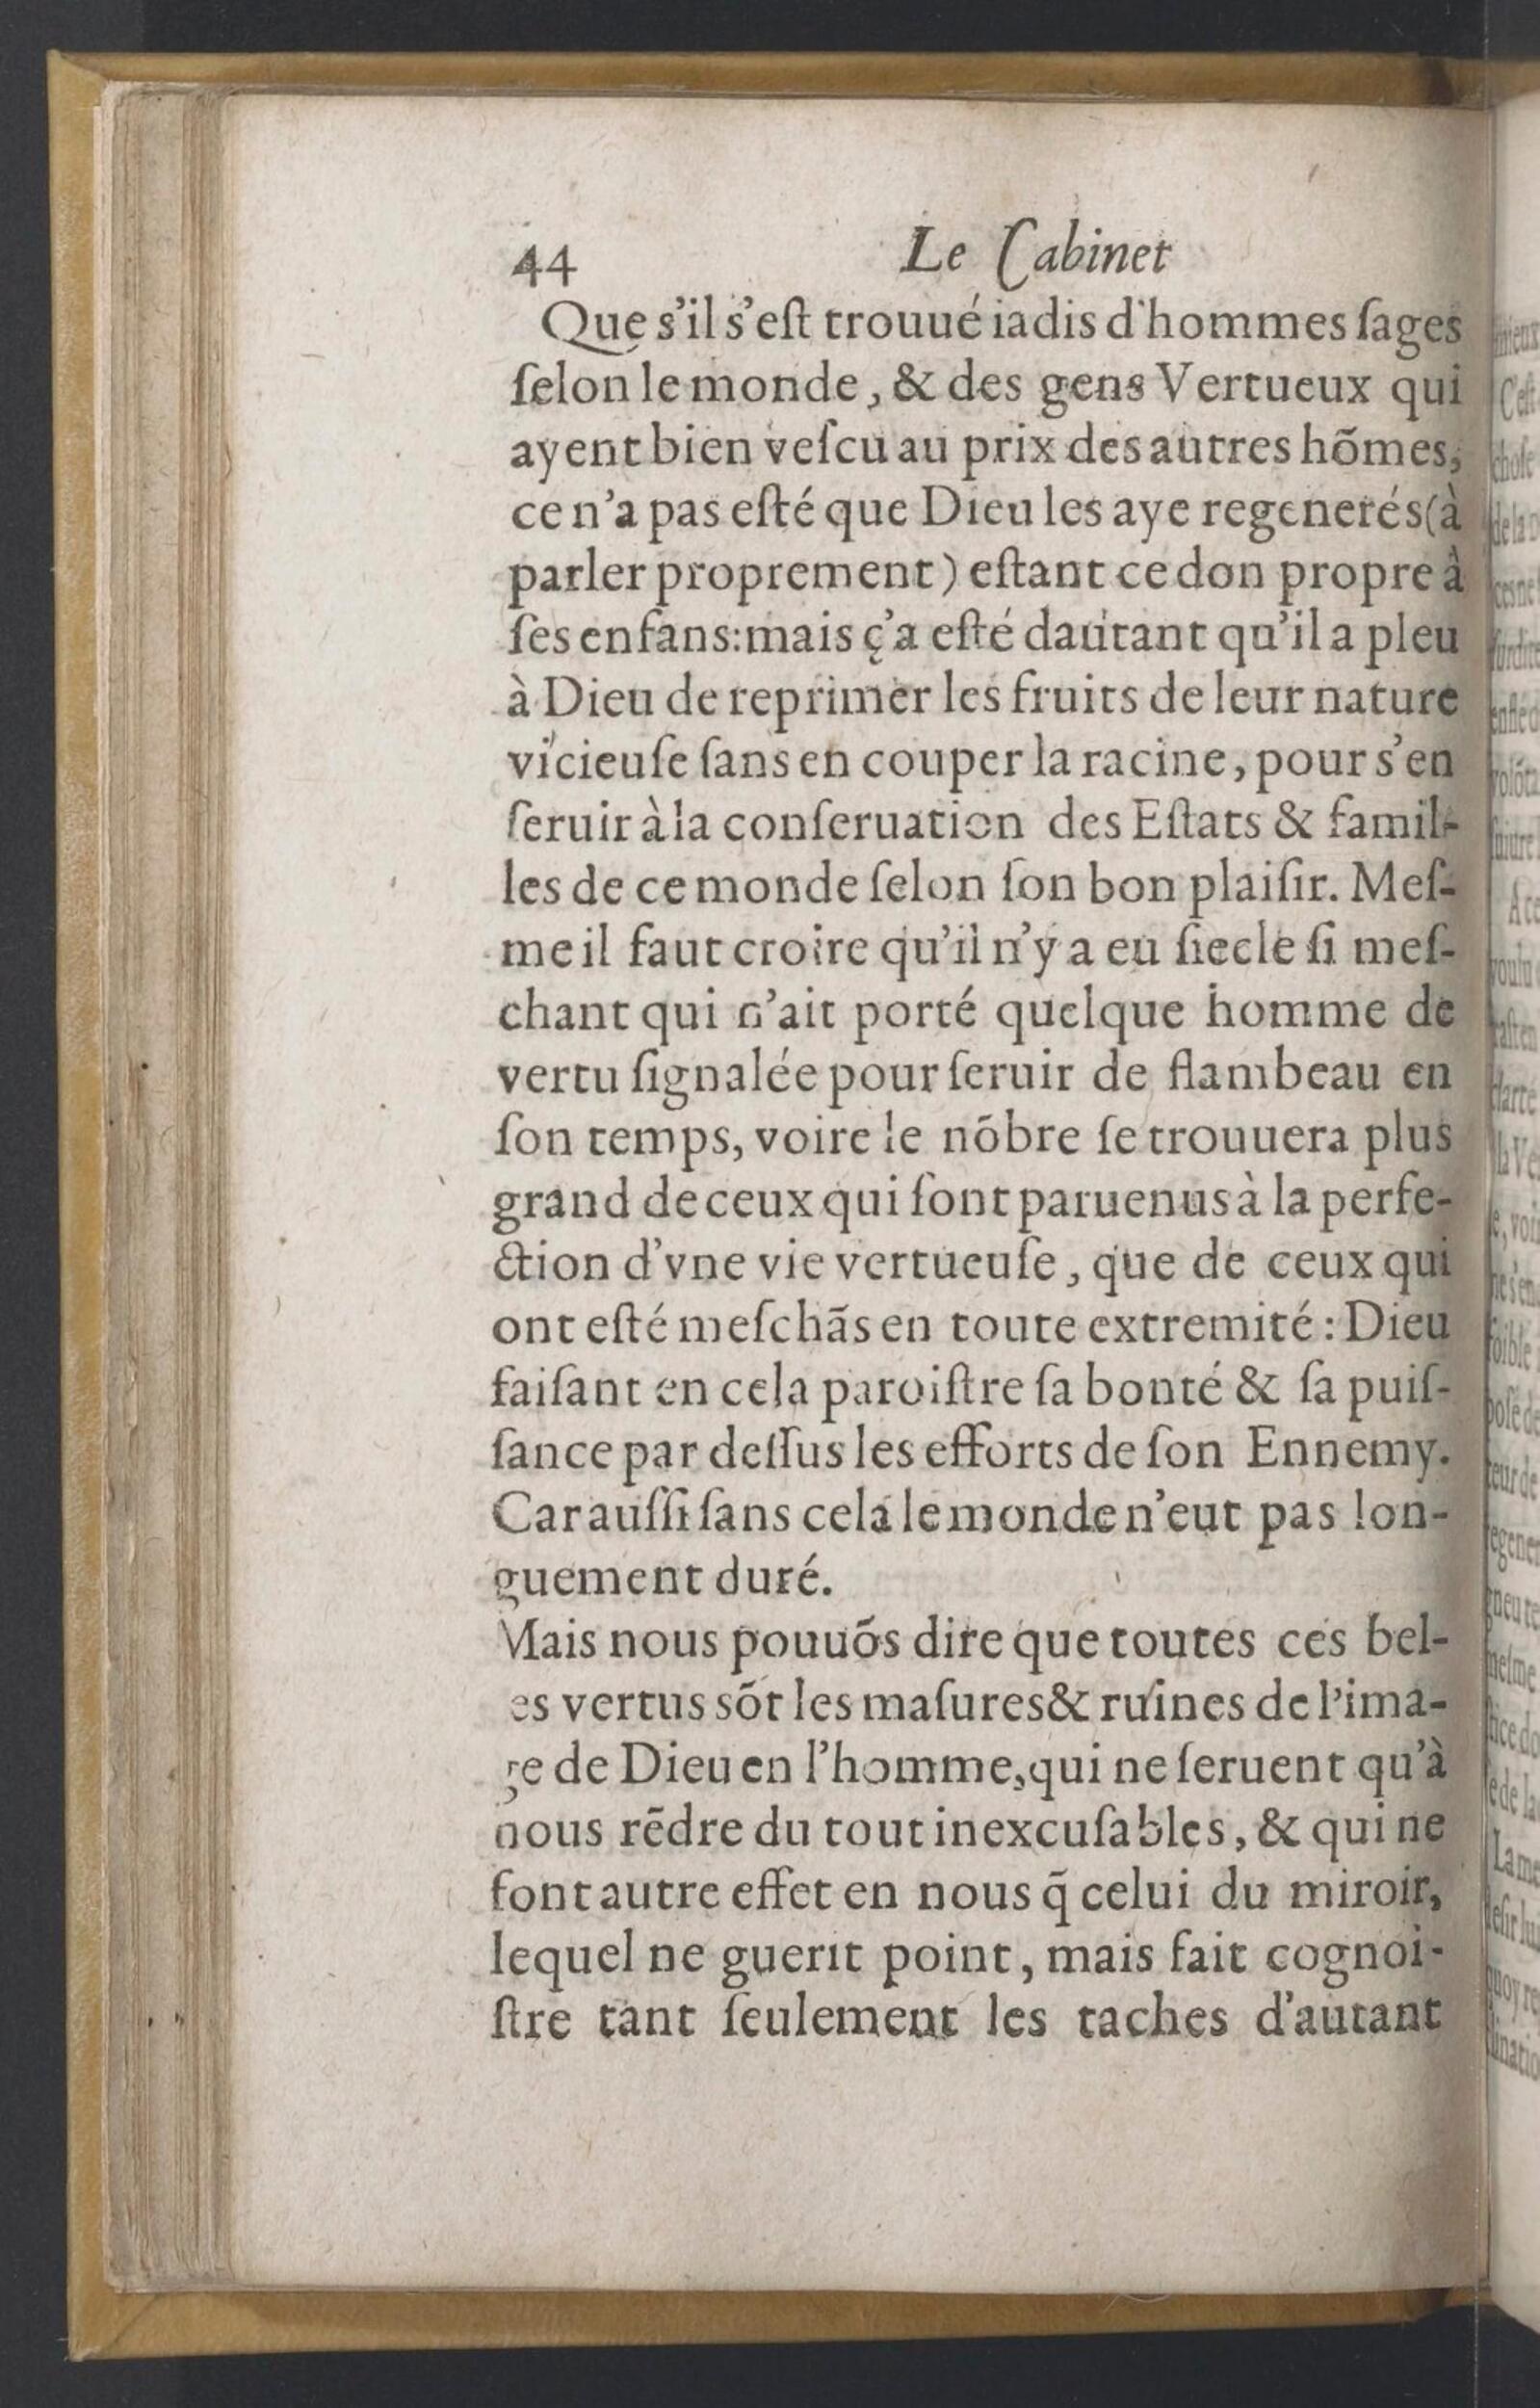 44 Le Cabinet
Que s'il s'eſt trouué iadis d'hommes ſages
ſelon le monde, & des gens Vertueux qui
ayent bien veſcu au prix des autres hõmes,
ce n'a pas eſté que Dieu les aye regenerés (à
parler proprement) eſtant ce don propre à
ſes enfans: mais ç'a eſté dautant qu'il a pleu
à Dieu de reprimer les fruits de leur nature
vicieuſe ſans en couper la racine, pour s'en
ſeruir à la conſeruation des Eſtats & famil-
les de ce monde ſelon ſon bon plaiſir. Meſ-
me il faut croire qu'il n'y a eu ſiecle ſi meſ-
chant qui n'ait porté quelque homme de
vertu ſignalée pour ſeruir de flambeau en
ſon temps, voire le nõbre ſe trouuera plus
grand de ceux qui ſont paruenus à la perfe-
ction d'vne vie vertueuſe, que de ceux qui
ont eſté meſchãs en toute extremité: Dieu
faiſant en cela paroiſtre ſa bonté & ſa puiſ-
ſance par deſſus les efforts de ſon Ennemy.
Car auſſi ſans cela le monde n'eut pas lon-
guement duré.
Mais nous pouuõs dire que toutes ces bel-
es vertus sõt les maſures & ruïnes de l'ima-
ge de Dieu en l'homme, qui ne ſeruent qu'à
nous rẽdre du tout inexcuſables, & qui ne
font autre effet en nous q̃ celui du miroir,
lequel ne guerit point, mais fait cognoi-
ſtre tant ſeulement les taches d'autant